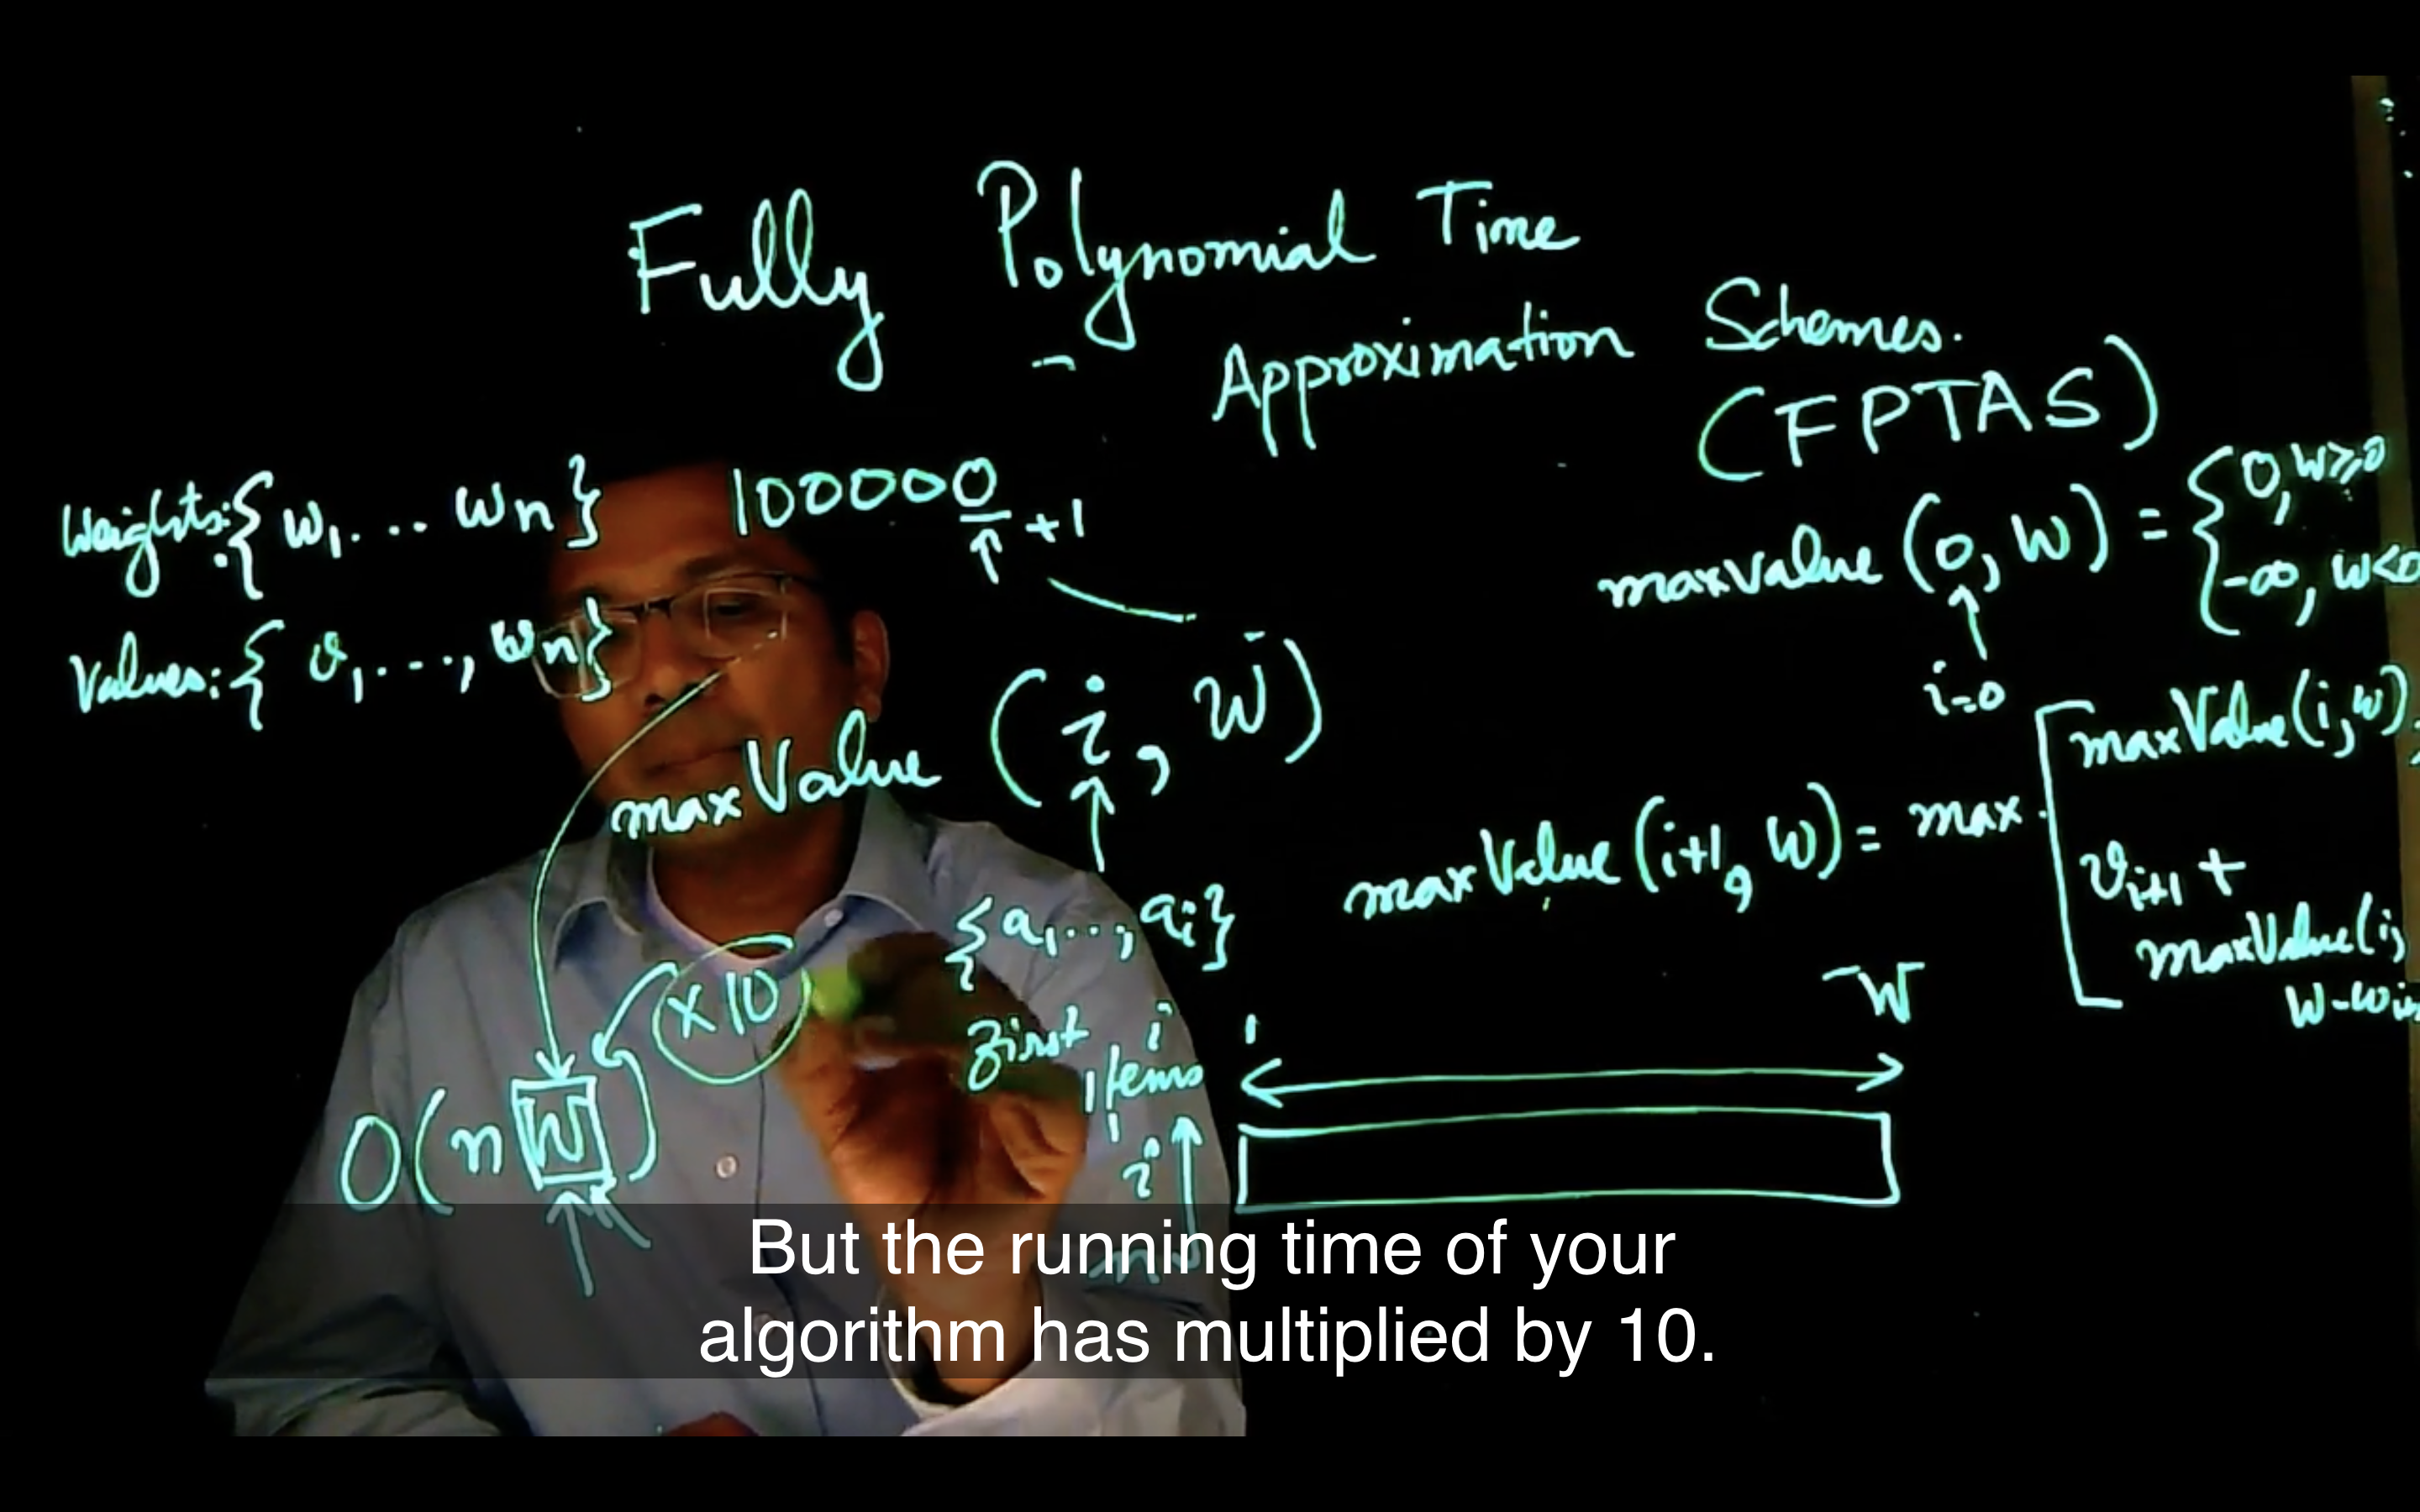 Fully Polynomial Time
Approximation Schemes.
(FPTAS)
Weights: { w1 . . . wn }
100000
↑ +1
Values: { v1 . . . , wn }
maxValue (i, W)
↑
{a1 . . , ai}
first i
items
x 10
O(n W)
maxvalue (0, W) = { 0, W≥0
-∞, W<0
↑
i=0
maxValue (i+1, W) = max
maxValue(i, W),
vi+1 +
maxValue(i,
W-wi+
1
W
i
But the running time of your
algorithm has multiplied by 10.